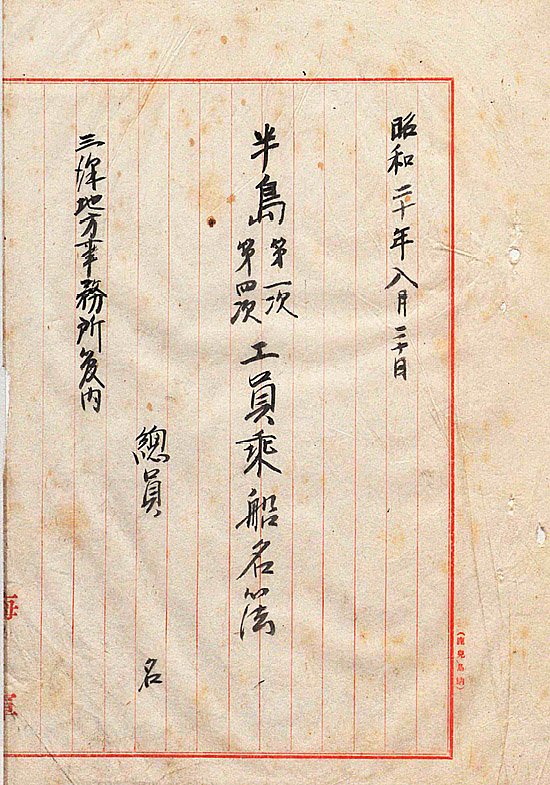 昭和二十年八月二十日
半島第一次
第四次
工員乗船名簿
總員　名
三澤地方事務所内
海軍
(鹿兒島納)